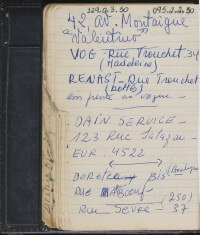 129.0.3.50   095.2.2.50
42 av. Montaigne
"Valentino"
VOG - Rue Tronchet, 34
(Madeleine)
RENAST - Rue Tronchet
(bottes)
en
DAIN SERVICE -
123 Rue
EUR 4522
BIS (Boutique)
RUE BOEUF (250)
Rue SEVRE - 37